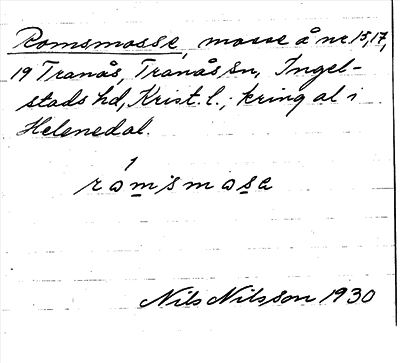 Romsmosse, mosse å nr 15, 17,
19 Tranås, Tranås sn, Ingel-
stads hd, Krist. l.; kring al i
Helenedal.
ròmsmosa
Nils Nilsson 1930